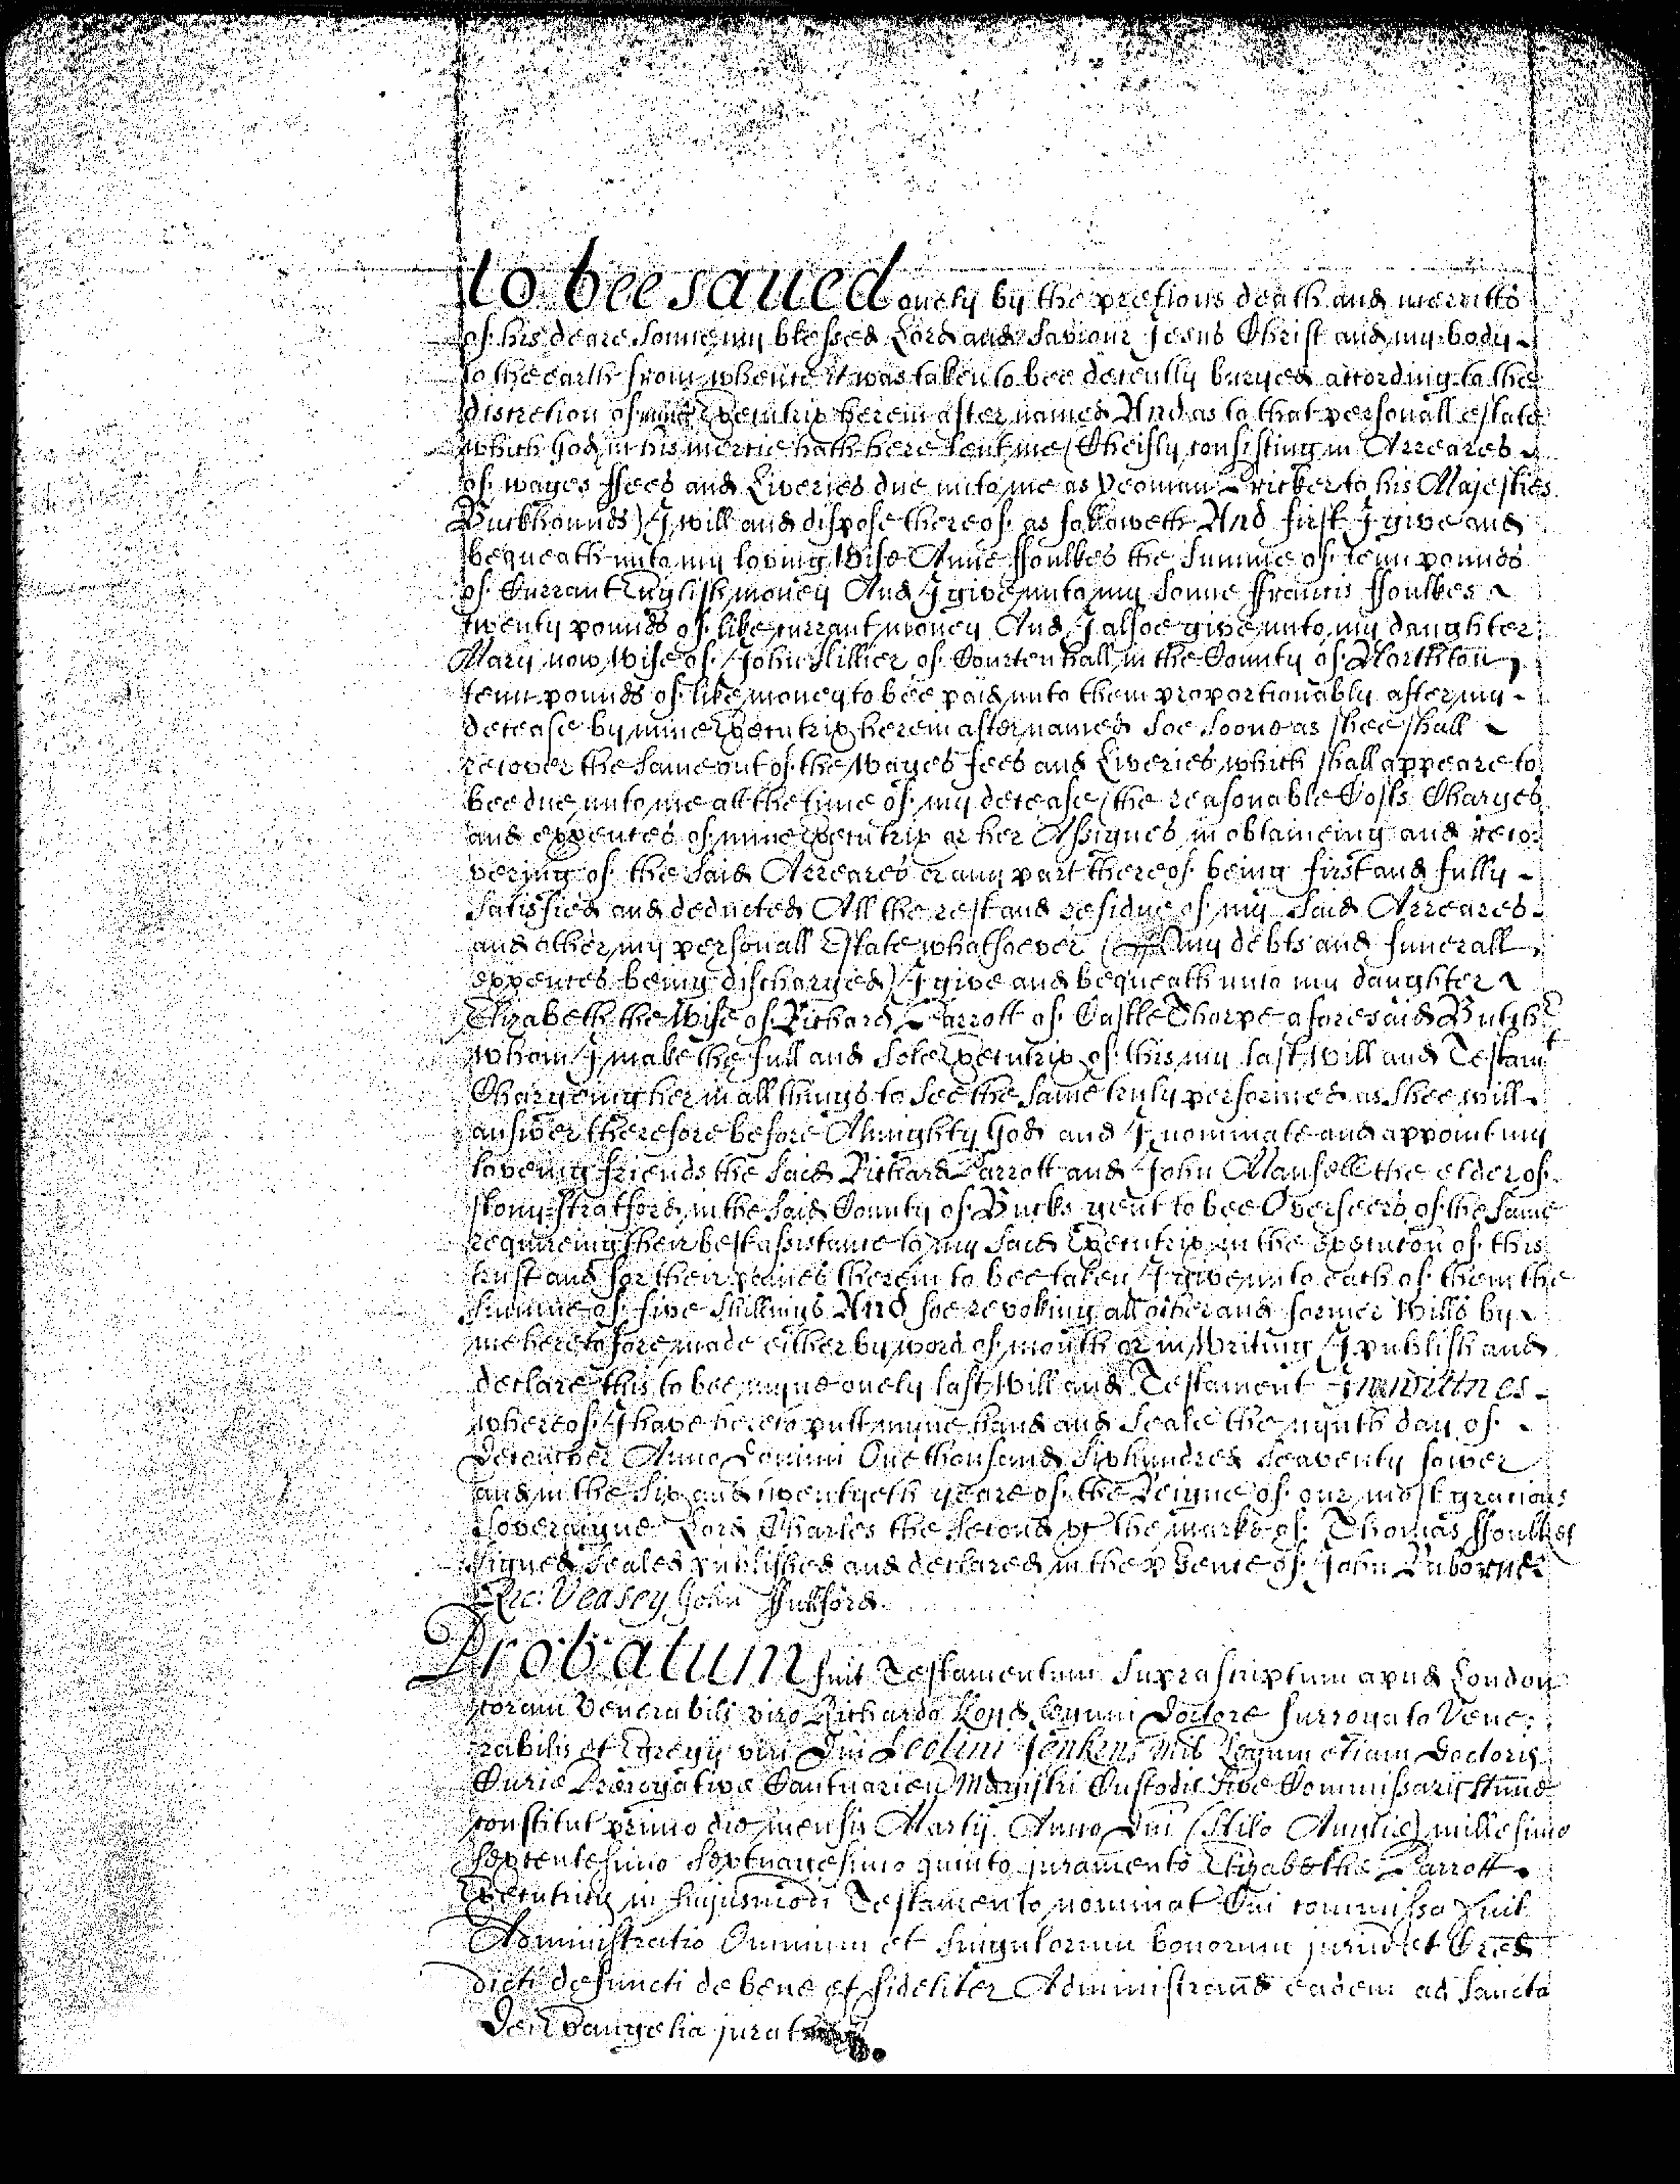 to bee saued onely by the pretious death and merritts
of his deare Sonne my blessed Lord and Saviour Jesus Christ and my body
to the earth from whence it was taken to bee decently buryed according to the
discretion of Executrix herein after named And as to that personall estate
which God in his mercie hath here lent me (Cheifly consisting in Arreares
of wages ffees and Liveries due unto me as Yeoman Pricker to his Majesties
Buckhounds) I will and dispose thereof as followeth And first I give and
bequeath unto my loving Wife Anne ffoulkes the Summe of tenn pounds
of Currant English money And I give unto my Sonne ffrancis ffoulkes
twenty pounds of like currant money And I alsoe give unto my daughter
Mary now Wife of John Hillier of Courtenhall in the County of Northton
tenn pounds of like money to bee paid unto them proportionably after my
decease by mine Executrix herein after named Soe Soone as shee shall
recover the Same out of the Wages fees and Liveries which shall appeare to
bee due unto me att the time of my decease (the reasonable Costs Charges
and expences of mine Executrix or her Assignes in obtaineing and reco:
vering of the Said Arreares or any part thereof being first and fully
Satisfied and deducted All the rest and residue of my Said Arreares
and other my personall Estate whatsoever (my debts and funerall
expences being discharged) I give and bequeath unto my daughter
Elizabeth the Wife of Richard Parrott of Castle Thorpe aforesaid Butchr
whom I make the full and Sole Executrix of this my last Will and Testamt
Chargeing her in all things to See the Same truly performed as Shee will
answer therefore before Almighty God and I nominate and appoint my
loveing friends the Said Richard Parrott and John Mansell the elder of
Stony Stratford in the Said County of Bucks gent to bee Overseers of the Same
requireing their best assistance to my Said Executrix in the execucon of this
trust and for their paines therein to bee taken I give unto each of them the
Summe of five Shillings And soe revoking all other and former Wills by
me heretofore made either by word of mouth or in Writing I publish and
declare this to bee myne onely last Will and Testament In wittnes
whereof I have hereto putt myne hand and Seale the nynth day of
December Anno Domini One thousand Six hundred Seaventy fower
and in the Six and twentyeth yeare of the Reigne of our most gracious
Soveraigne Lord Charles the Second &c the marke of Thomas ffoulkes
Signed Sealed published and declared in the psence of John Puborne
Ric: Veasey John ffullford
Probatum fuit Testamentum Suprascriptum apud London
coram Venerabili viro Richardo Lloyd legum Doctore Surrogato Vene:
rabilis et Egregij viri Dni Leolini Jenkens Mil Legum etiam Doctoris
Curie Prerogative Cantuarien Magistri Custodis Sive Commissarij
constitut primo die mensis Martij Anno Dni (Stilo Anglie) millesimo
Sexcentesimo Septuagesimo quinto juramento Elizabethe Parrott
Executricis in hujusmodi Testamento nominat Cui commissa fuit
Administratio Omnium et Singulorum bonorum jurium et Cred
dicti defuncti de bene et fideliter Administrand eadem ad Sancta
Dei Evangelia jurat